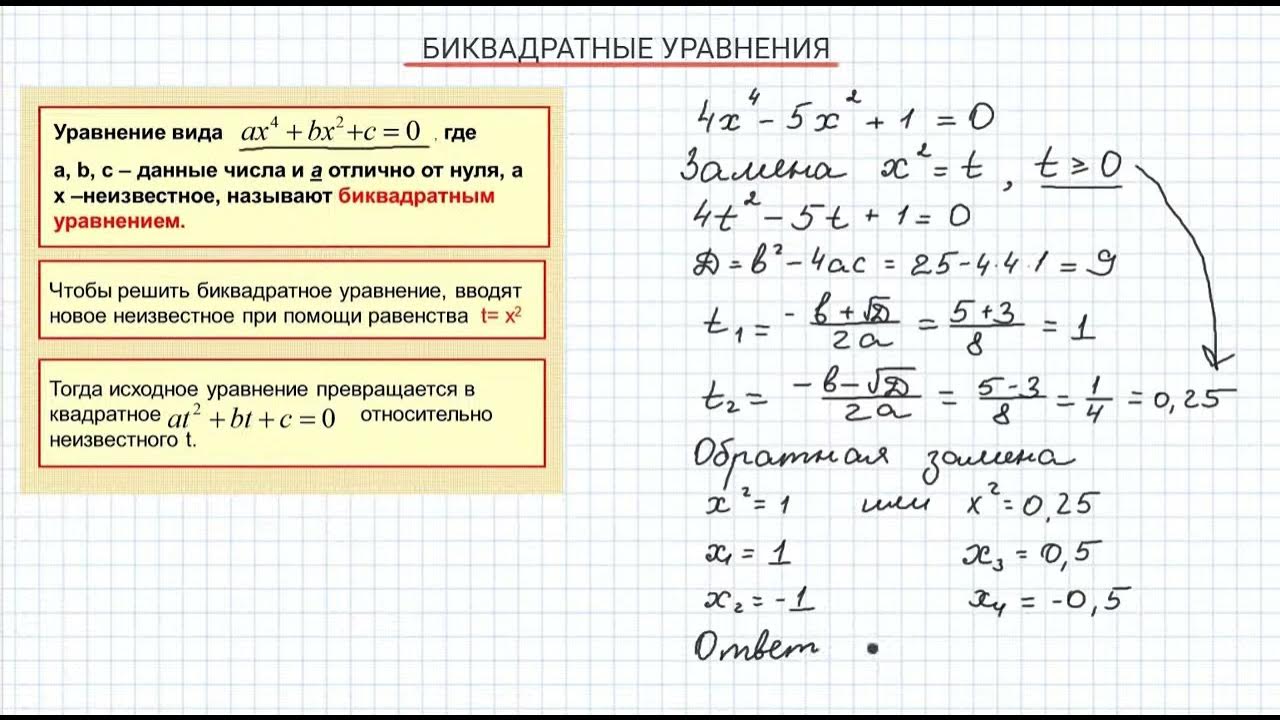 БИКВАДРАТНЫЕ УРАВНЕНИЯ
Уравнение вида ax⁴ + bx² + c = 0 , где
a, b, c – данные числа и a отлично от нуля, а
x –неизвестное, называют биквадратным
уравнением.
Чтобы решить биквадратное уравнение, вводят
новое неизвестное при помощи равенства t= x²
Тогда исходное уравнение превращается в
квадратное at² + bt + c = 0 относительно
неизвестного t.
4x⁴ - 5x² + 1 = 0
Замена x² = t , t ≥ 0
4t² - 5t + 1 = 0
Д = в² - 4ac = 25 - 4·4·1 = 9
t₁ = - в + √Д / 2a = 5 + 3 / 8 = 1
t₂ = - в - √Д / 2a = 5 - 3 / 8 = 1/4 = 0,25
Обратная замена
x² = 1 или x² = 0,25
x₁ = 1 x₃ = 0,5
x₂ = -1 x₄ = -0,5
Ответ